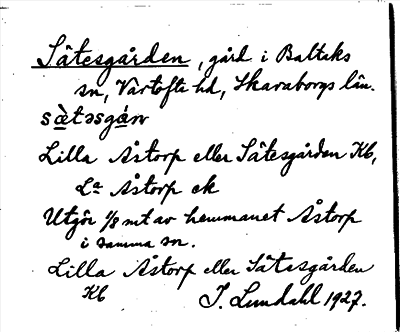 Sätesgården, gård i Baltaks
sn, Vartofta hd, Skaraborgs län.
sὰ̱təsgά̱ṇ
Lilla Åstorp eller Sätesgården Kb,
La Åstorp ek
Utgör 1/8 mt av hemmanet Åstorp
i samma sn.
Lilla Åstorp eller Sätesgården
Kb
I. Lundahl 1927.